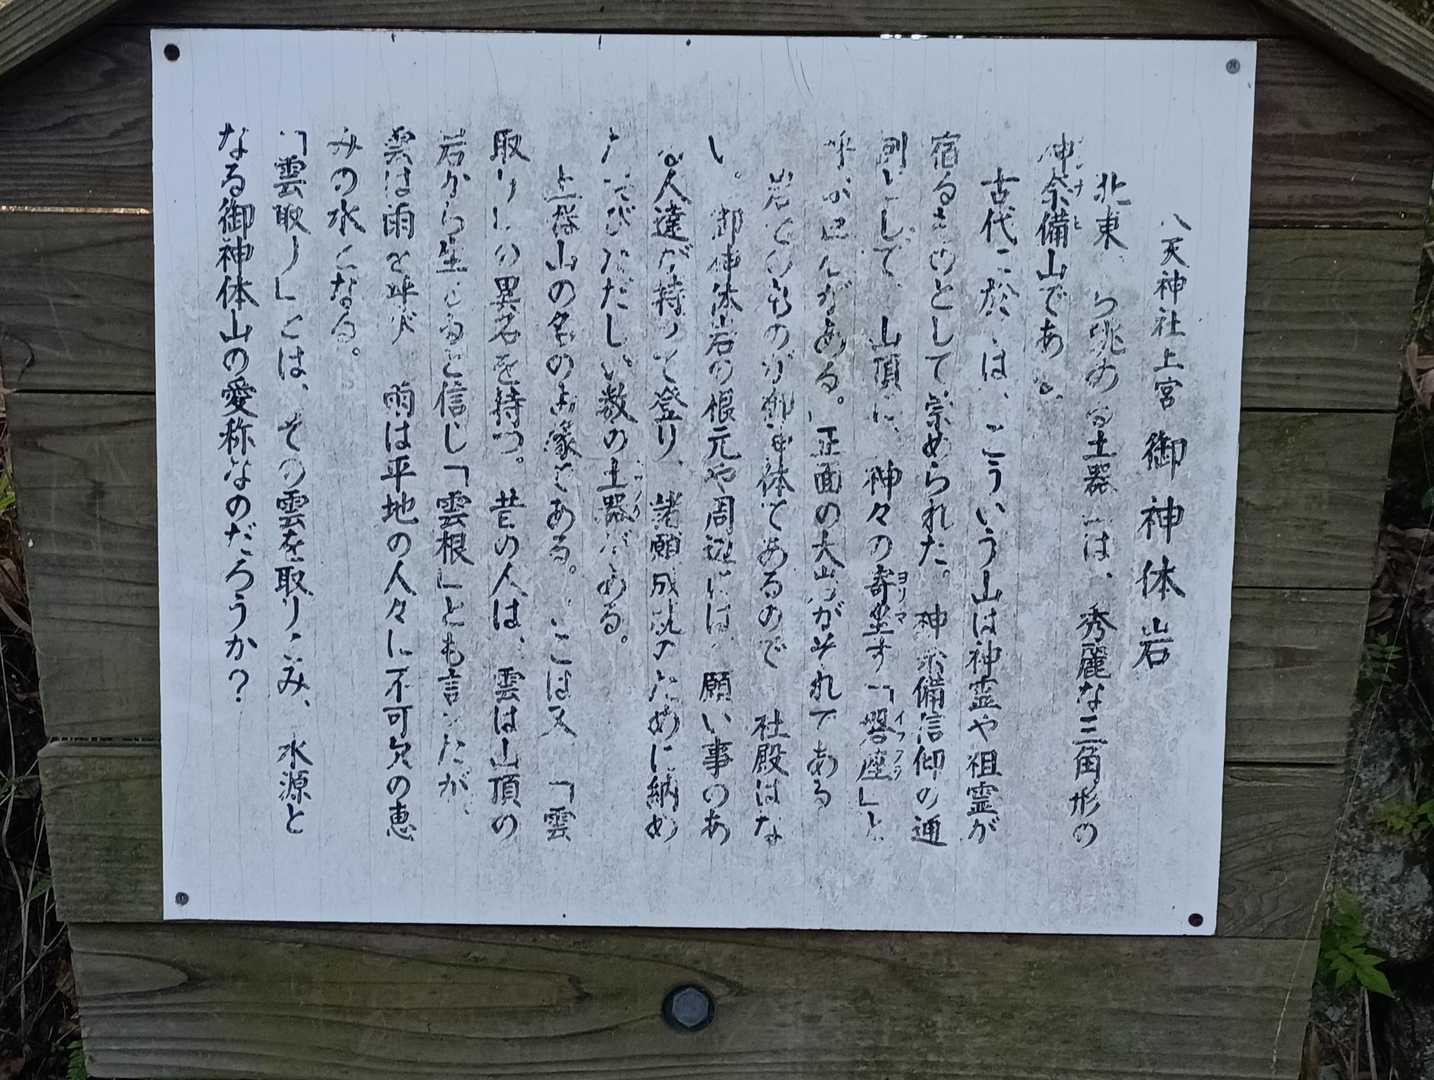 八天神社上宮 御神体岩
北東 ら眺める土器 は、秀麗な三角形の
神奈備山である。
古代に於ては、こういう山は神霊や祖霊が
宿るものとして崇められた。神奈備信仰の通
例として、山頂に、神々の寄坐す「磐座」と
ヨリマ イワクラ
呼ぶ巴んがある。正面の大岩がそれである
岩そのものが御神体であるので 社殿はな
い。御神体岩の根元や周辺には、願い事のあ
る人達が持って登り、諸願成就のために納め
たおびただしい数の土器がある。
土器山の名の由縁である。ここは又、「雲
取り」の異名を持つ。昔の人は、雲は山頂の
岩から生まると信じ「雲根」とも言ったが、
雲は雨を呼び 雨は平地の人々に不可欠の恵
みの水となる。
「雲取り」とは、その雲を取りこみ、水源と
なる御神体山の愛称なのだろうか？